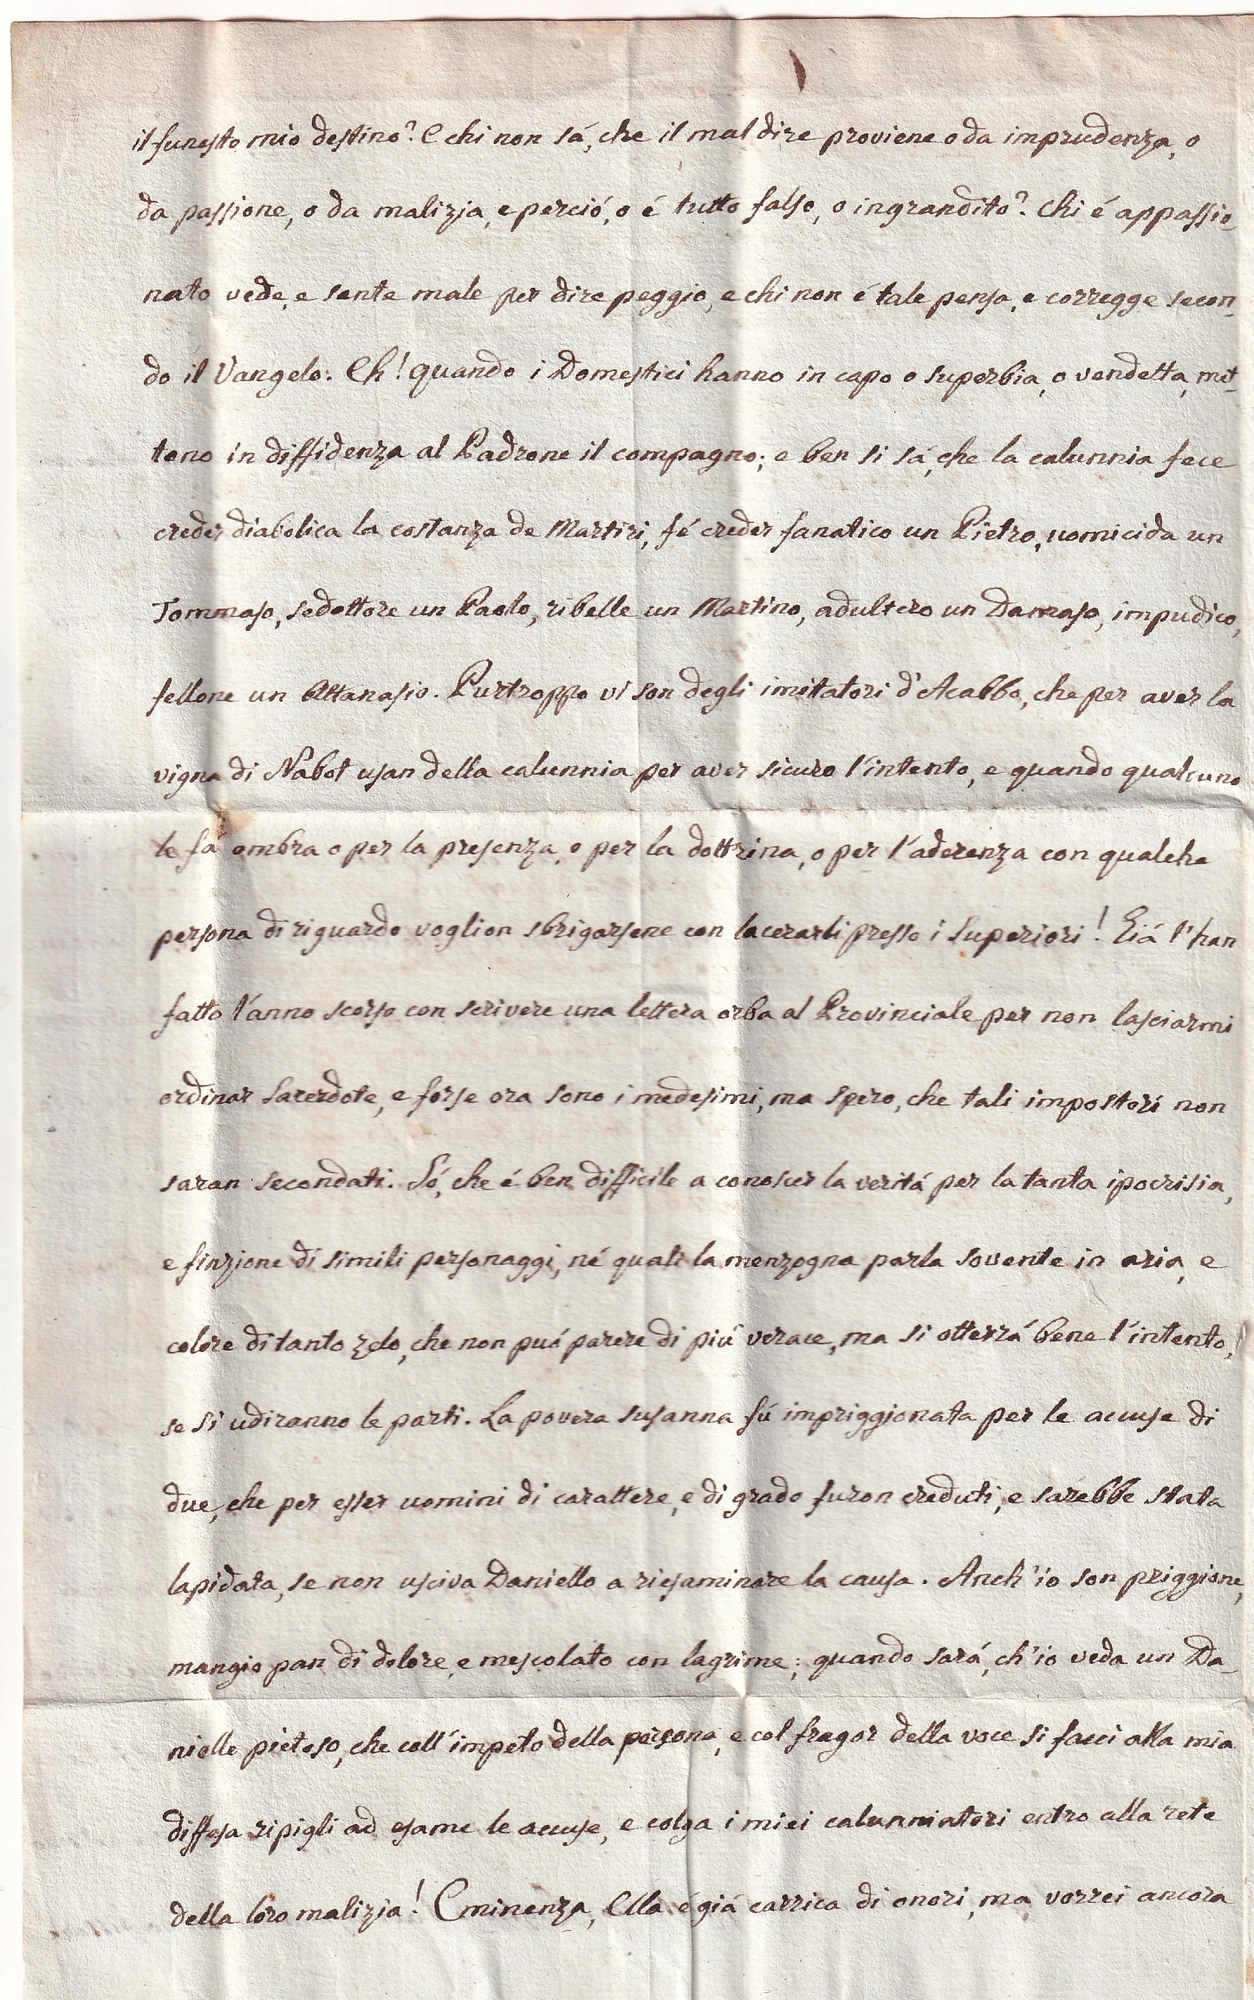 il funesto mio destino? E chi non sá, che il mal dire proviene o da imprudenza, o
da passione, o da malizia, e perció, o é tutto falso, o ingrandito? Chi é appassio-
nato vede, e sente male per dire peggio, e chi non é tale pensa, e corregge secon-
do il Vangelo. Eh! quando i Domestici hanno in capo o superbia, o vendetta, met-
tono in diffidenza al Padrone il compagno; e ben si sá, che la calunnia fece
creder diabolica la costanza de Martiri, fé creder fanatico un Pietro, uomicida un
Tommaso, sedottore un Paolo, ribelle un Martino, adultero un Damaso, impudico,
fellone un Attanasio. Purtroppo vi son degli imitatori d'Acabbo, che per aver la
vigna di Nabot usan della calunnia per aver sicuro l'intento, e quando qualcuno
le fá ombra o per la presenza, o per la dottrina, o per l'aderenza con qualche
persona di riguardo voglion sbrigarsene con lacerarli presso i Superiori! Giá l'han
fatto l'anno scorso con scrivere una lettera orba al Provinciale per non lasciarmi
ordinar Sacerdote, e forse ora sono i medesimi, ma spero, che tali impostori non
saran secondati. Só, che é ben difficile a conoscer la veritá per la tanta ipocrisia,
e finzione di simili personaggi, né quali la menzogna parla sovente in aria, e
colore di tanto zelo, che non puó parere di piú verace, ma si otterrá bene l'intento,
se si udiranno le parti. La povera Susanna fú impriggionata per le accuse di
due, che per esser uomini di carattere, e di grado furon creduti, e sarebbe stata
lapidata, se non usciva Daniello a riesaminare la causa. Anch'io son priggione,
mangio pan di dolore, e mescolato con lagrime; quando sará, ch'io veda un Da-
niello pietoso, che coll'impeto della persona, e col fragor della voce si facci alla mia
diffesa ripigli ad esame le accuse, e colga i miei calunniatori entro alla rete
della loro malizia! Eminenza, Ella é giá carrica di onori, ma vorrei ancora